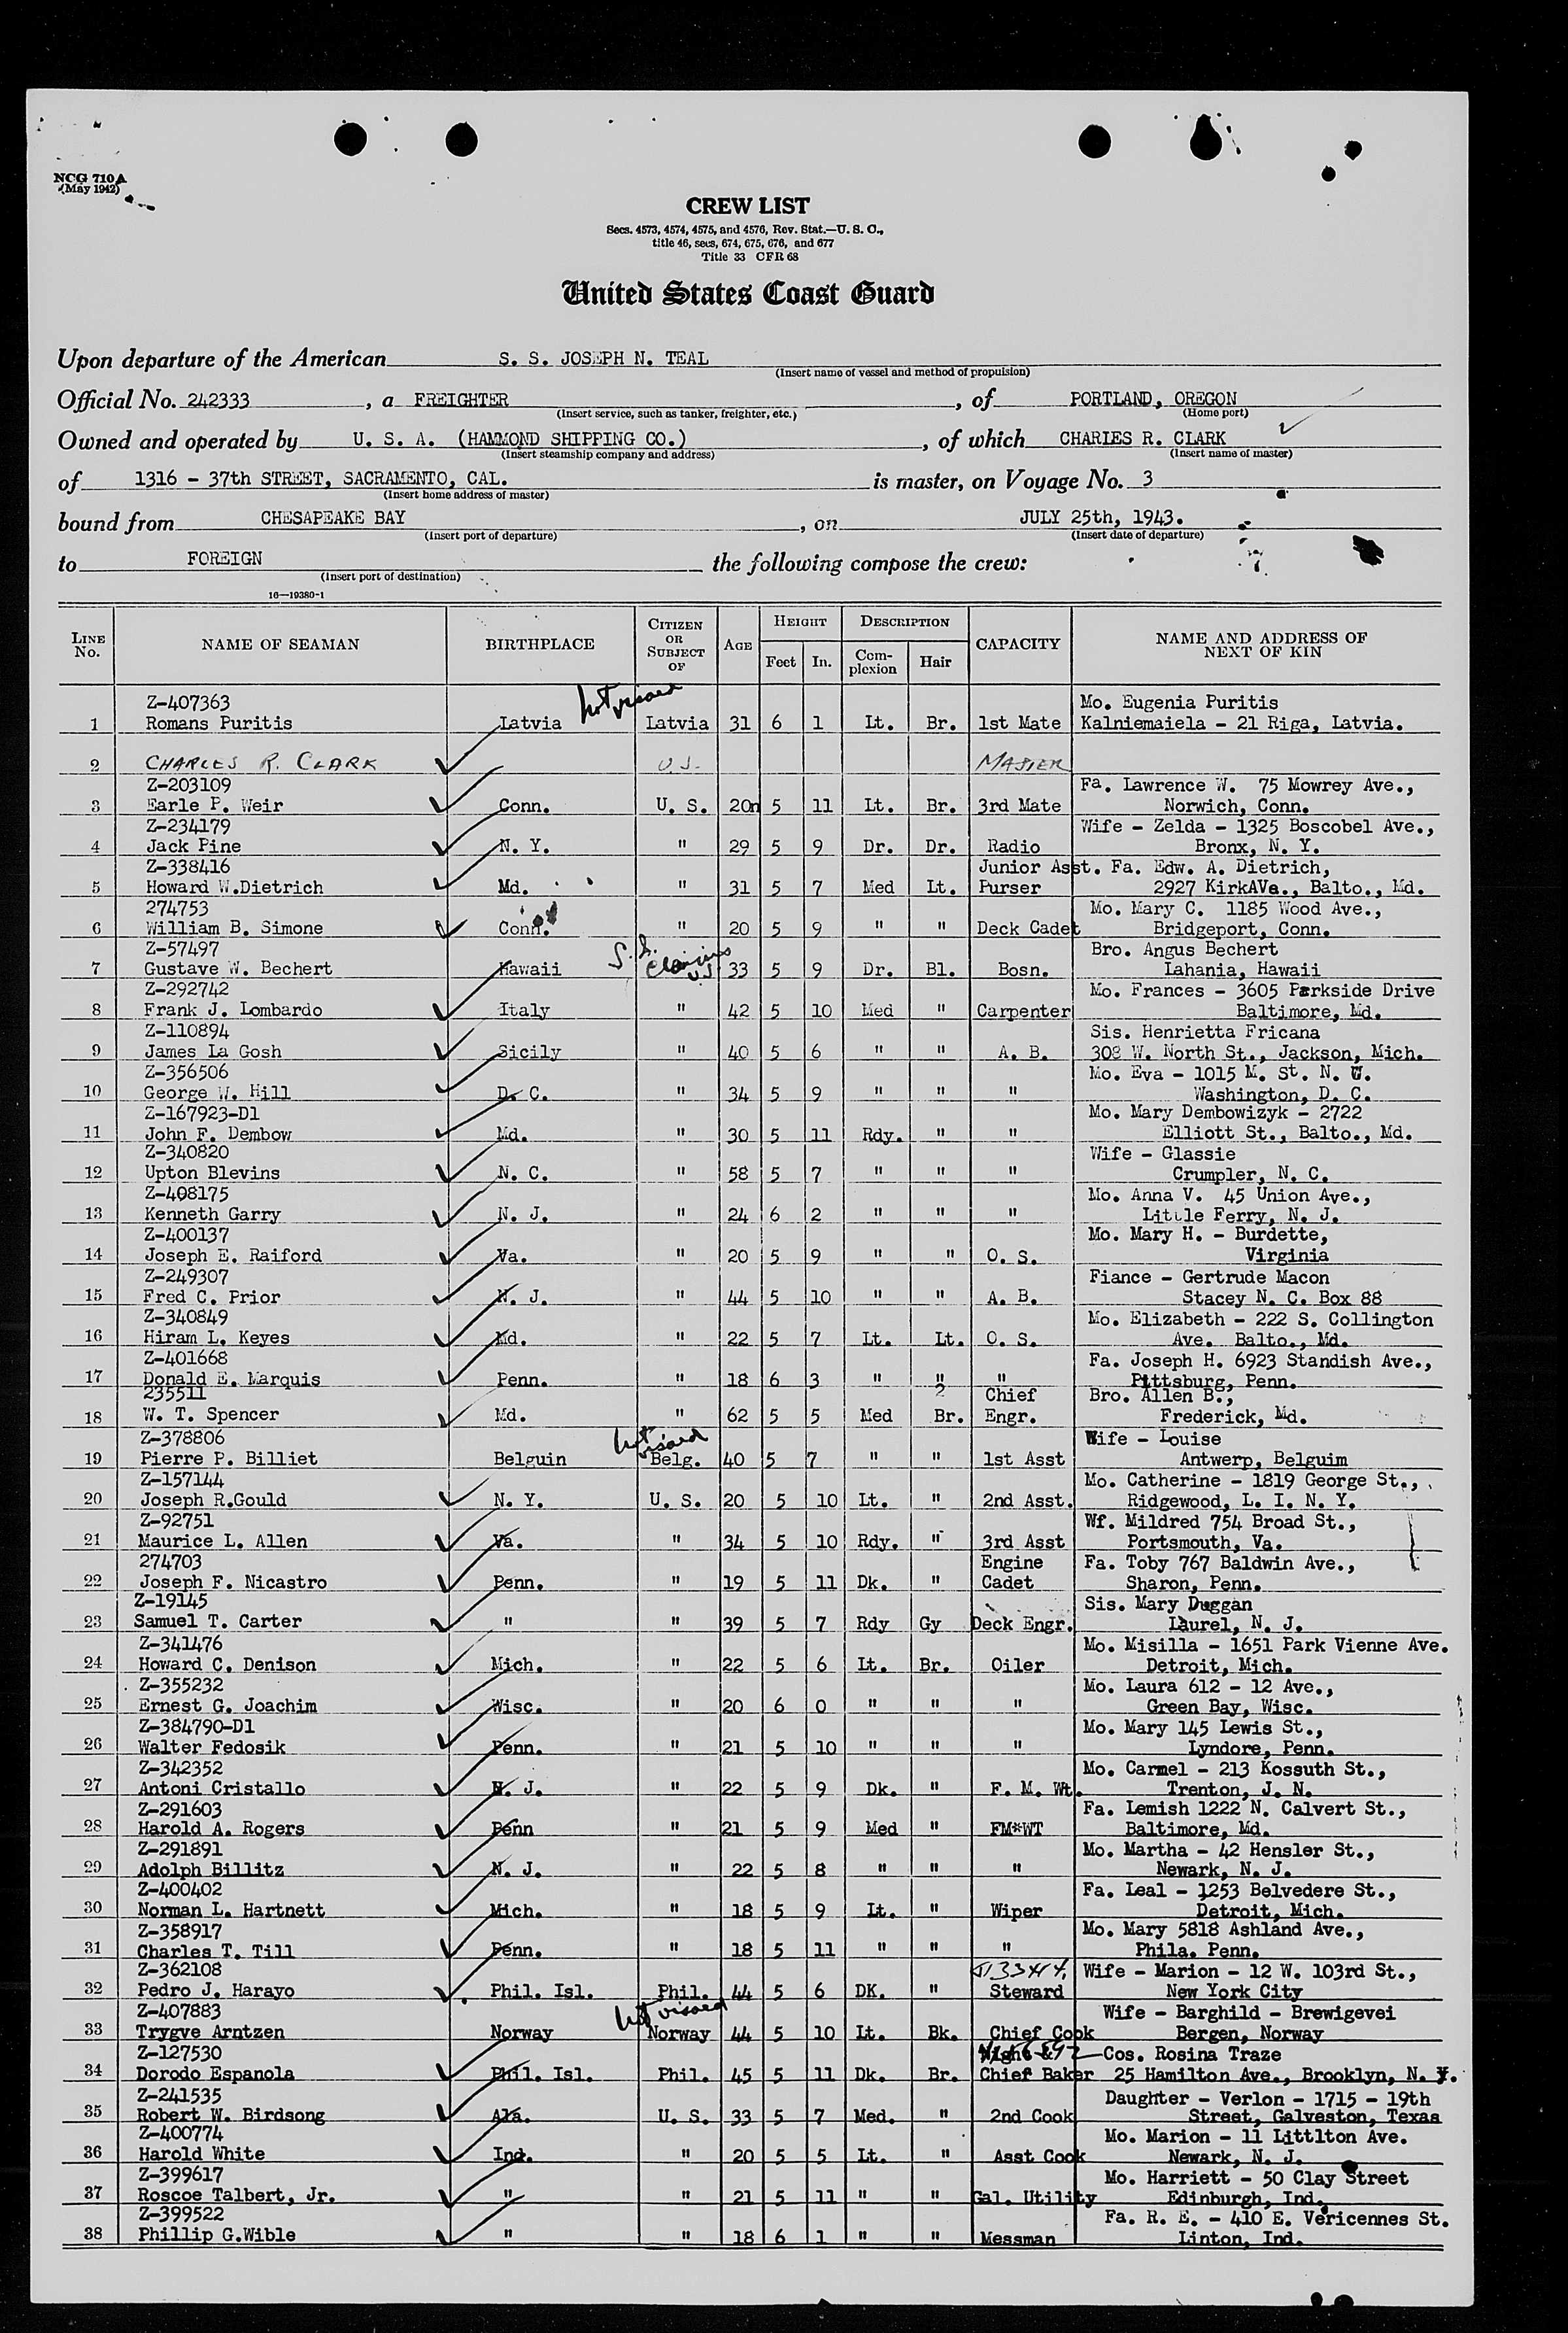 NCG 710A
(May 1942)
CREW LIST
Secs. 4573, 4574, 4575, and 4576, Rev. Stat.—U. S. C.,
title 46, secs, 674, 675, 676, and 677
Title 33 CFR 68
United States Coast Guard
Upon departure of the American S. S. JOSEPH N. TEAL
(Insert name of vessel and method of propulsion)
Official No. 242333, a FREIGHTER, of PORTLAND, OREGON
(Insert service, such as tanker, freighter, etc.) (Home port)
Owned and operated by U. S. A. (HAMMOND SHIPPING CO.), of which CHARLES R. CLARK
(Insert steamship company and address) (Insert name of master)
of 1316 - 37th STREET, SACRAMENTO, CAL. is master, on Voyage No. 3
(Insert home address of master)
bound from CHESAPEAKE BAY, on JULY 25th, 1943.
(Insert port of departure) (Insert date of departure)
to FOREIGN the following compose the crew:
(Insert port of destination)
16—19380-1
LINE No. NAME OF SEAMAN BIRTHPLACE CITIZEN OR SUBJECT OF AGE HEIGHT Feet In. DESCRIPTION Complexion Hair CAPACITY NAME AND ADDRESS OF NEXT OF KIN
Z-407363 Not visaed Mo. Eugenia Puritis
1 Romans Puritis Latvia Latvia 31 6 1 Lt. Br. 1st Mate Kalniemaiela - 21 Riga, Latvia.
2 CHARLES R. CLARK U.S. MASTER
Z-203109 Fa. Lawrence W. 75 Mowrey Ave.,
3 Earle P. Weir Conn. U. S. 20n 5 11 Lt. Br. 3rd Mate Norwich, Conn.
Z-234179 Wife - Zelda - 1325 Boscobel Ave.,
4 Jack Pine N. Y. " 29 5 9 Dr. Dr. Radio Bronx, N. Y.
Z-338416 Junior Asst. Fa. Edw. A. Dietrich,
5 Howard W.Dietrich Md. " 31 5 7 Med Lt. Purser 2927 KirkAVe., Balto., Md.
274753 Mo. Mary C. 1185 Wood Ave.,
6 William B. Simone Conn. " 20 5 9 " " Deck Cadet Bridgeport, Conn.
Z-57497 Bro. Angus Bechert
7 Gustave W. Bechert Hawaii U.S. 33 5 9 Dr. Bl. Bosn. Lahania, Hawaii
Z-292742 Mo. Frances - 3605 Parkside Drive
8 Frank J. Lombardo Italy " 42 5 10 Med " Carpenter Baltimore, Md.
Z-110894 Sis. Henrietta Fricana
9 James La Gosh Sicily " 40 5 6 " " A. B. 308 W. North St., Jackson, Mich.
Z-356506 Mo. Eva - 1015 M. St. N. W.
10 George W. Hill D. C. " 34 5 9 " " " Washington, D. C.
Z-167923-D1 Mo. Mary Dembowizyk - 2722
11 John F. Dembow Md. " 30 5 11 Rdy. " " Elliott St., Balto., Md.
Z-340820 Wife - Glassie
12 Upton Blevins N. C. " 58 5 7 " " " Crumpler, N. C.
Z-408175 Mo. Anna V. 45 Union Ave.,
13 Kenneth Garry N. J. " 24 6 2 " " " Little Ferry, N. J.
Z-400137 Mo. Mary H. - Burdette,
14 Joseph E. Raiford Va. " 20 5 9 " " O. S. Virginia
Z-249307 Fiance - Gertrude Macon
15 Fred C. Prior N. J. " 44 5 10 " " A. B. Stacey N. C. Box 88
Z-340849 Mo. Elizabeth - 222 S. Collington
16 Hiram L. Keyes Md. " 22 5 7 Lt. Lt. O. S. Ave. Balto., Md.
Z-401668 Fa. Joseph H. 6923 Standish Ave.,
17 Donald E. Marquis Penn. " 18 6 3 " " " Pittsburg, Penn.
235511 ? Chief Bro. Allen B.,
18 W. T. Spencer Md. " 62 5 5 Med Br. Engr. Frederick, Md.
Z-378806 Not visaed Wife - Louise
19 Pierre P. Billiet Belguin Belg. 40 5 7 " " 1st Asst Antwerp, Belguim
Z-157144 Mo. Catherine - 1819 George St.,
20 Joseph R.Gould N. Y. U. S. 20 5 10 Lt. " 2nd Asst. Ridgewood, L. I. N. Y.
Z-92751 Wf. Mildred 754 Broad St.,
21 Maurice L. Allen Va. " 34 5 10 Rdy. " 3rd Asst Portsmouth, Va.
274703 Engine Fa. Toby 767 Baldwin Ave.,
22 Joseph F. Nicastro Penn. " 19 5 11 Dk. " Cadet Sharon, Penn.
Z-19145 Sis. Mary Duggan
23 Samuel T. Carter " " 39 5 7 Rdy Gy Deck Engr. Laurel, N. J.
Z-341476 Mo. Misilla - 1651 Park Vienne Ave.
24 Howard C. Denison Mich. " 22 5 6 Lt. Br. Oiler Detroit, Mich.
Z-355232 Mo. Laura 612 - 12 Ave.,
25 Ernest G. Joachim Wisc. " 20 6 0 " " " Green Bay, Wisc.
Z-384790-D1 Mo. Mary 145 Lewis St.,
26 Walter Fedosik Penn. " 21 5 10 " " " Lyndore, Penn.
Z-342352 Mo. Carmel - 213 Kossuth St.,
27 Antoni Cristallo N. J. " 22 5 9 Dk. " F. M. Wt. Trenton, J. N.
Z-291603 Fa. Lemish 1222 N. Calvert St.,
28 Harold A. Rogers Penn " 21 5 9 Med " FM*WT Baltimore, Md.
Z-291891 Mo. Martha - 42 Hensler St.,
29 Adolph Billitz N. J. " 22 5 8 " " " Newark, N. J.
Z-400402 Fa. Leal - 1253 Belvedere St.,
30 Norman L. Hartnett Mich. " 18 5 9 Lt. " Wiper Detroit, Mich.
Z-358917 Mo. Mary 5818 Ashland Ave.,
31 Charles T. Till Penn. " 18 5 11 " " " Phila. Penn.
Z-362108 Wife - Marion - 12 W. 103rd St.,
32 Pedro J. Harayo Phil. Isl. Phil. 44 5 6 DK. " Steward New York City
Z-407883 Not visaed Wife - Barghild - Brewigevei
33 Trygve Arntzen Norway Norway 44 5 10 Lt. Bk. Chief Cook Bergen, Norway
Z-127530 Night & Cos. Rosina Traze
34 Dorodo Espanola Phil. Isl. Phil. 45 5 11 Dk. Br. Chief Baker 25 Hamilton Ave., Brooklyn, N. Y.
Z-241535 Daughter - Verlon - 1715 - 19th
35 Robert W. Birdsong Ala. U. S. 33 5 7 Med. " 2nd Cook Street, Galveston, Texas
Z-400774 Mo. Marion - 11 Littlton Ave.
36 Harold White Ind. " 20 5 5 Lt. " Asst Cook Newark, N. J.
Z-399617 Mo. Harriett - 50 Clay Street
37 Roscoe Talbert, Jr. " " 21 5 11 " " Gal. Utility Edinburgh, Ind.
Z-399522 Fa. R. E. - 410 E. Vericennes St.
38 Phillip G.Wible " " 18 6 1 " " Messman Linton, Ind.